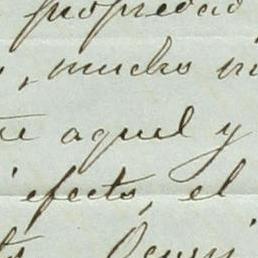 propiedad
, mucho
aquel y
efecto, el